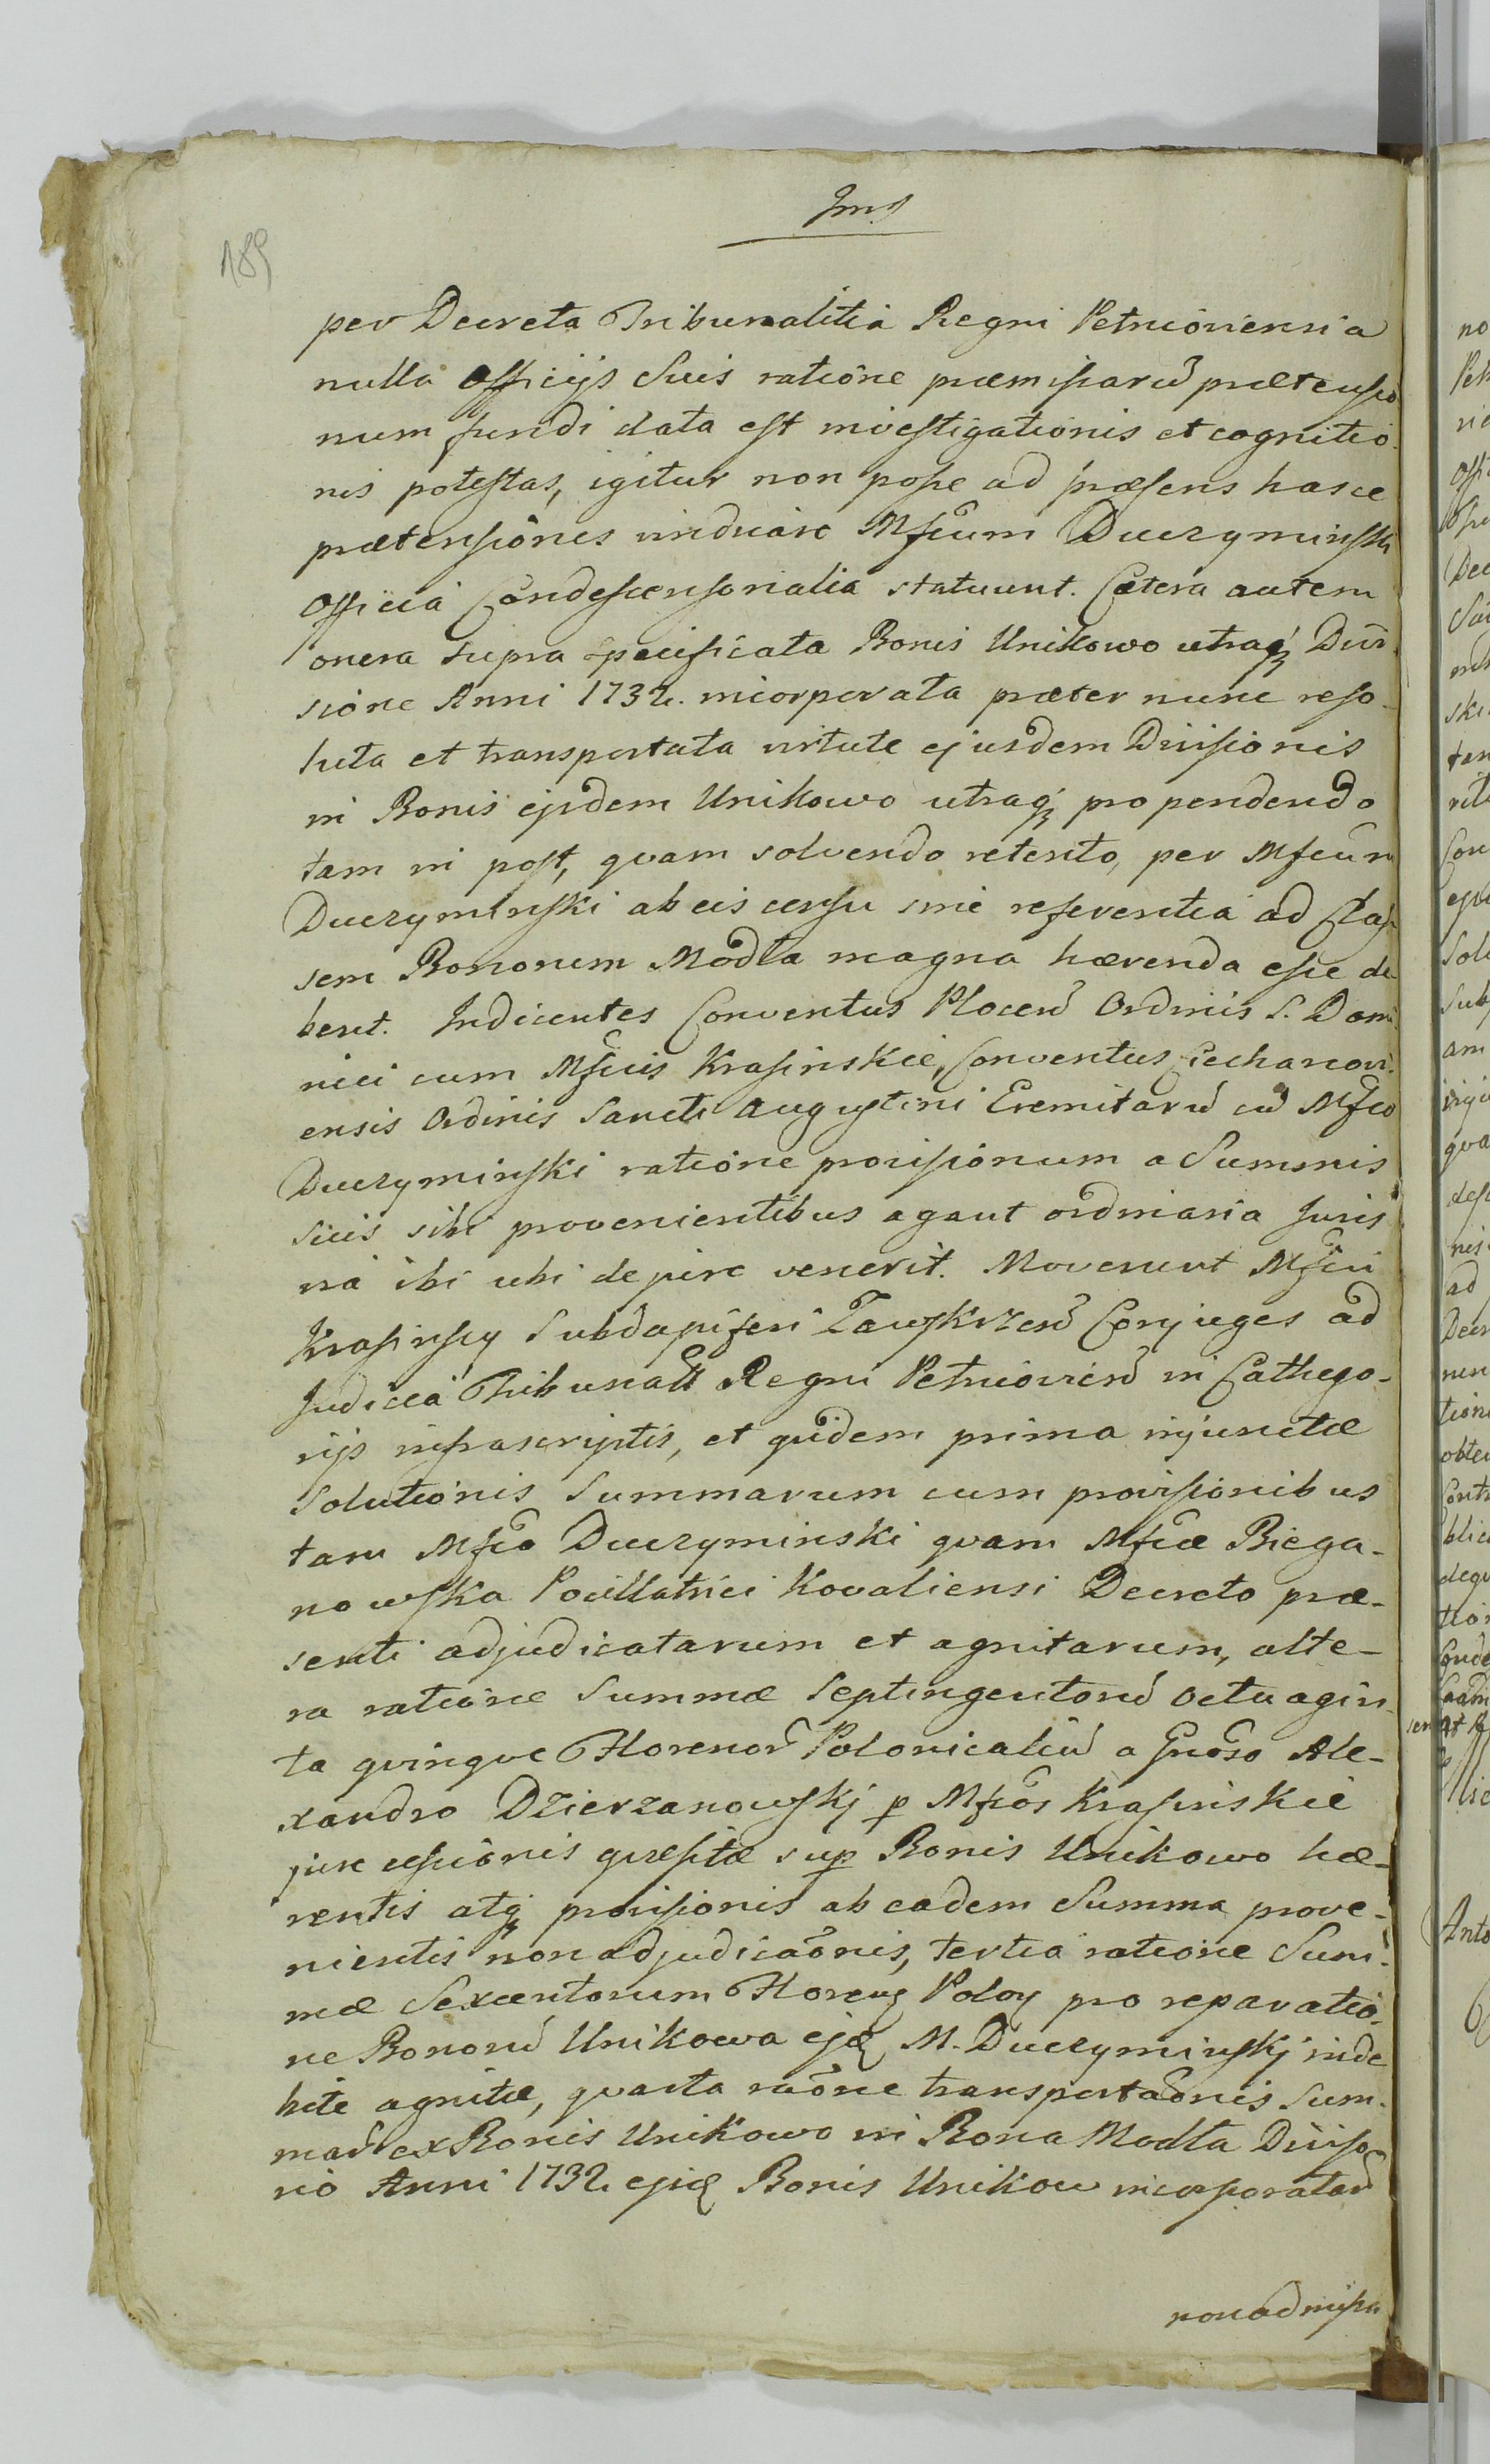 Jms
189
per Decreta Tribunalitia Regni Petricoviensia
nulla Officijs Suis ratione præmissarū prætensio
num fundi data est investigationis et cognitio
nis potestas, igitur non posse ad præsens hasce
prætensiones vindicare Mfcum Duczyminski
Officia Condescensorialia statuunt. Cætera autem
onera supra specificata Bonis Unikowo utraq; Divi
sione Anni 1732. incorporata præter nunc reso-
luta et transportata virtute ejusdem Divisionis
in Bonis ejsdem Unikowo utraq; pro pendendo
tam in post, quam solvendo retento, per Mfcum
Duczyminski ab eis censu sine referentia ad Clas
sem Bonorum Modła magna hærenda esse de
bent. Indicentes Conventus Plocen̄ Ordinis S. Domi
nici cum Mfcis Krasinskie, Conventus Ciechanovi
ensis Ordinis Sancti Augustini Eremitarū cū Mfco
Duczyminski ratione provisionum a Summis
suis sibi provenientibus agant ordinaria Juris
via ibi ubi de jure venerit. Moverunt Mfci
Krasinscy Subdapiferi Zawskrzen̄ Conjuges ad
Judicia Tribunalia Regni Petricovien̄ in Cathego-
rijs infrascriptis, et quidem prima injunctæ
Solutionis Summarum cum provisionibus
tam Mfco Duczyminski quam Mfcæ Biega-
nowska Pocillatrici Kovaliensi Decreto præ-
senti adjudicatarum et agnitarum, alte-
ra ratione Summæ Septingentorū Octuagin
ta quinque Florenor̄ Polonicaliū a Gnoso Ale-
xandro Dzierzanowskj p Mfcos Krasinskie
jure cessionis quæsitæ sup Bonis Unikowo hæ-
rentis atq; provisionis ab eadem Summa prove-
nientis non adjudicaōnis, tertia ratione Sum-
mæ Sexcentorum Floren; Polon; pro reparatio-
ne Bonorū Unikowa ejd M. Duczyminskj inde
bite agnitæ, quarta raōne transportaōnis Sum-
mar̄ ex Bonis Unikowo in Bona Modła Diviso
rio Anni 1732. ejsd Bonis Unikow incorporatar̄
non admissa